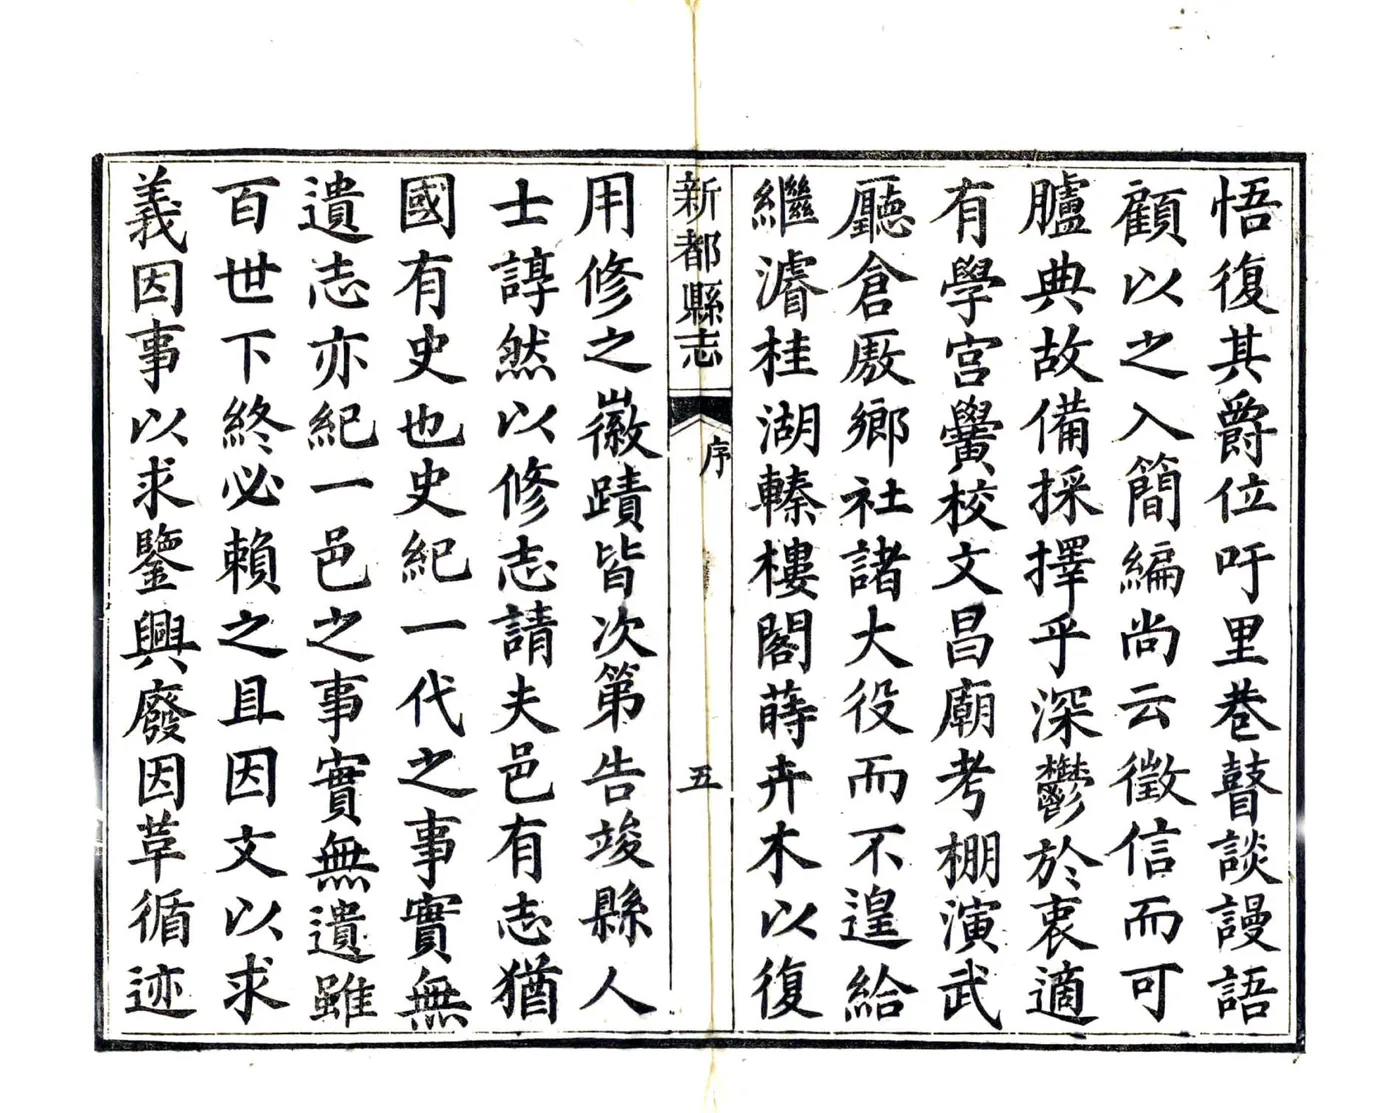 悟復其爵位吁里巷瞽談謾語
顧以之入簡編尚云徵信而可
臚典故備採擇乎深鬱於衷適
有學宮黌校文昌廟考棚演武
廳倉厫鄉社諸大役而不遑給
繼濬桂湖轃樓閣蒔卉木以復
新都縣志
序
五
用修之徽蹟皆次第告竣縣人
士諄然以修志請夫邑有志猶
國有史也史紀一代之事實無
遺志亦紀一邑之事實無遺雖
百世下終必賴之且因文以求
義因事以求鑒興廢因革循迹